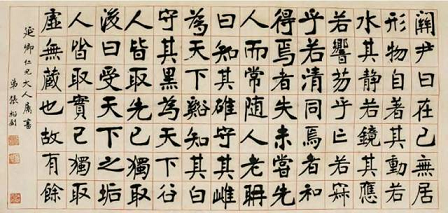 關尹曰在己無居
形物自著其動若
水其静若鏡其應
若響芴乎亡若寂
乎若清同焉者和
得焉者失未嘗先
人而常隨人老聃
曰知其雄守其雌
為天下谿知其白
守其黑為天下谷
人皆取先己獨取
後曰受天下之垢
人皆取實己獨取
虛無藏也故有餘
延卿仁兄大人屬書
弟張裕釗